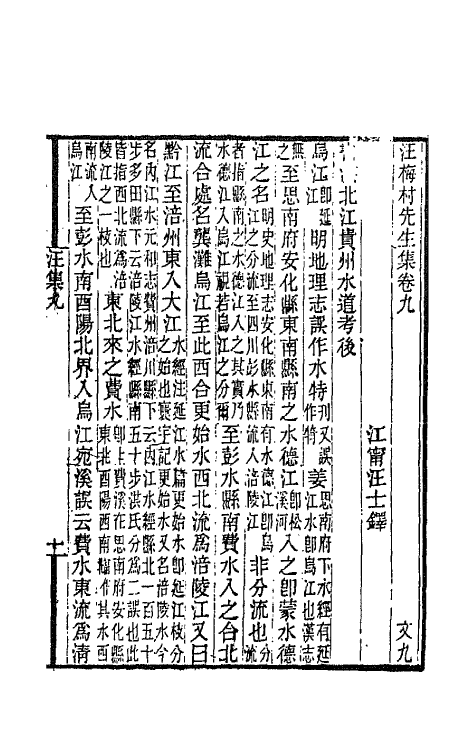 汪梅村先生集卷九 文九
江甯汪士鐸
北江貴州水道考後
烏江即延江明地理志誤作水特刊又誤作犄姜思南府下水經有延江水即烏江也漢志
無之至思南府安化縣東南縣南之水德江即松溪河入之即蒙水德
江之名明史地理志安化縣東南有水德江即烏江之分流至四川彭水縣流入涪陵江非分流也分流
者指縣南之水德江入之其實乃水德江入烏江視若烏江之分爾至彭水縣南費水入之合北
流合處名龔灘烏江至此西合更始水西北流爲涪陵江又曰
黔江至涪州東入大江水經注延江水篇更始水即延江枝分之始也寰宇記更始水又名涪陵水今
名內江水元和志費州涪川縣下云內江水經縣北一百五十步多田縣下云涪陵江水經縣南五十步洪氏分爲二誤也此
皆指西北流爲涪陵江之一枝也東北來之費水即上費溪在思南府安化縣東北酉陽西南作其水西
南流入烏江至彭水南酉陽北界入烏江宛溪誤云費水東流爲清
汪集九 十